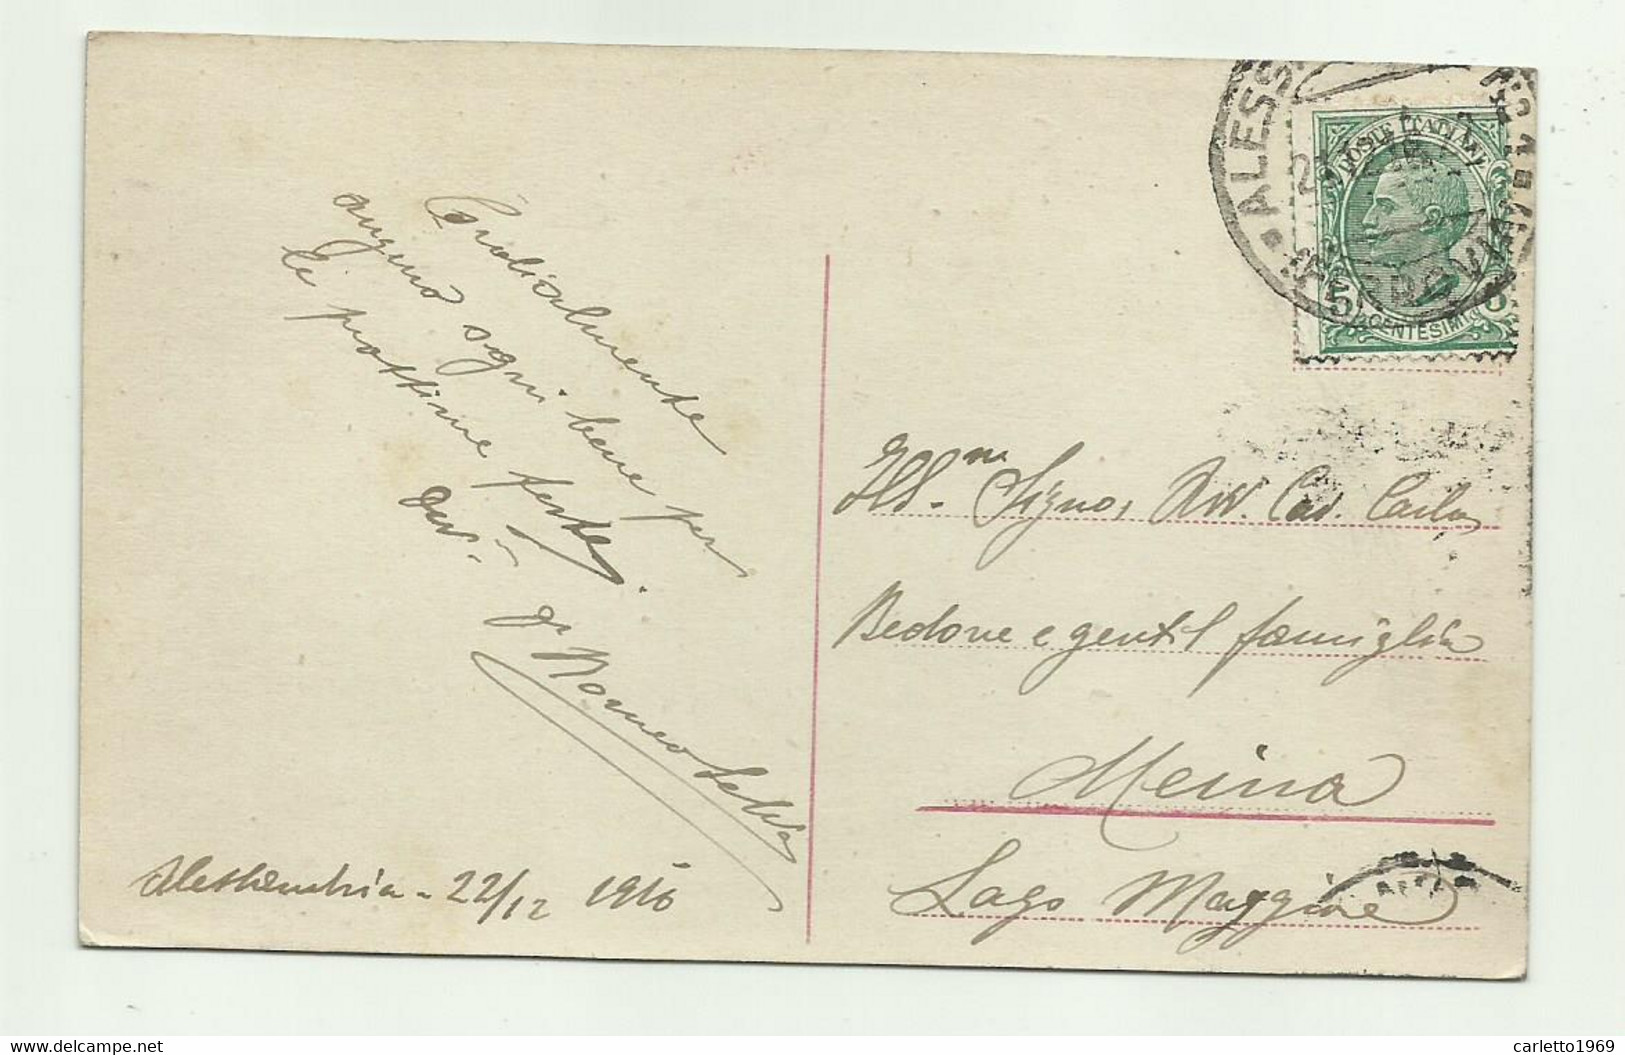 Cordialmente
auguro ogni bene per
le prossime feste.
Dev.
Alessandria - 22/12 1916
ALESS
FERROVIA
POSTE ITALIANE
5 CENTESIMI 5
Ill.mo Signor Avv. Cav. Carlo
Bedone e gentil famiglia
Meina
Lago Maggiore
www.delcampe.net
carletto1969